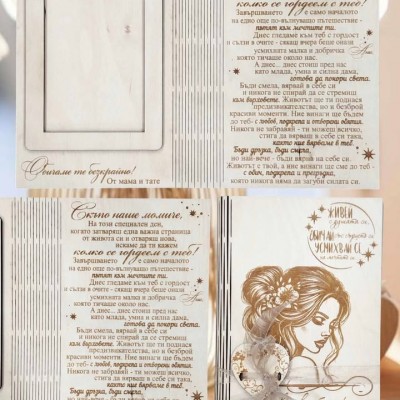 колко се гордеем с теб!
Завършването
на едно още по-вълнуващо пътешествие -
пътят към мечтите ти.
Днес гледаме към теб с гордост
и сълзи в очите - сякаш вчера беше онази
усмихната малка и добричка
която тичаше около нас.
А днес... днес стоиш пред нас
като млада, умна и силна дама,
готова да покори света.
Бъди смела, вярвай в себе си
и никога не спирай да се стремиш
към върховете. Животът ще ти поднася
предизвикателства, но и безброй
красиви моменти. Ние винаги ще бъдем
до теб - с любов, подкрепа и отворени обятия.
Никога не забравяй - ти можеш всичко,
стига да вярваш в себе си така,
както ние вярваме в теб.
Бъди дръзка, бъди смела,
но най-вече - бъди себе си.
Животът е твой, а ние винаги ще сме до теб -
с обич, подкрепа и прегръдка,
която никога няма да загуби силата си.
Обичаме те безкрайно!
От мама и тате
Скъпо наше момиче,
На този специален ден,
когато затваряш една важна страница
от живота си и отваряш нова,
искаме да ти кажем
колко се гордеем с теб!
Завършването
на едно още по-вълнуващо пътешествие -
пътят към мечтите ти.
Днес гледаме към теб с гордост
и сълзи в очите - сякаш вчера беше онази
усмихната малка и добричка
която тичаше около нас.
А днес... днес стоиш пред нас
като млада, умна и силна дама,
готова да покори света.
Бъди смела, вярвай в себе си
и никога не спирай да се стремиш
към върховете. Животът ще ти поднася
предизвикателства, но и безброй
красиви моменти. Ние винаги ще бъдем
до теб - с любов, подкрепа и отворени обятия.
Никога не забравяй - ти можеш всичко,
стига да вярваш в себе си така,
както ние вярваме в теб.
Бъди дръзка, бъди смела,
но най-вече - бъди себе си.
ЖИВЕЙ
ОБИЧАЙ
УСМИХВАЙ СЕ